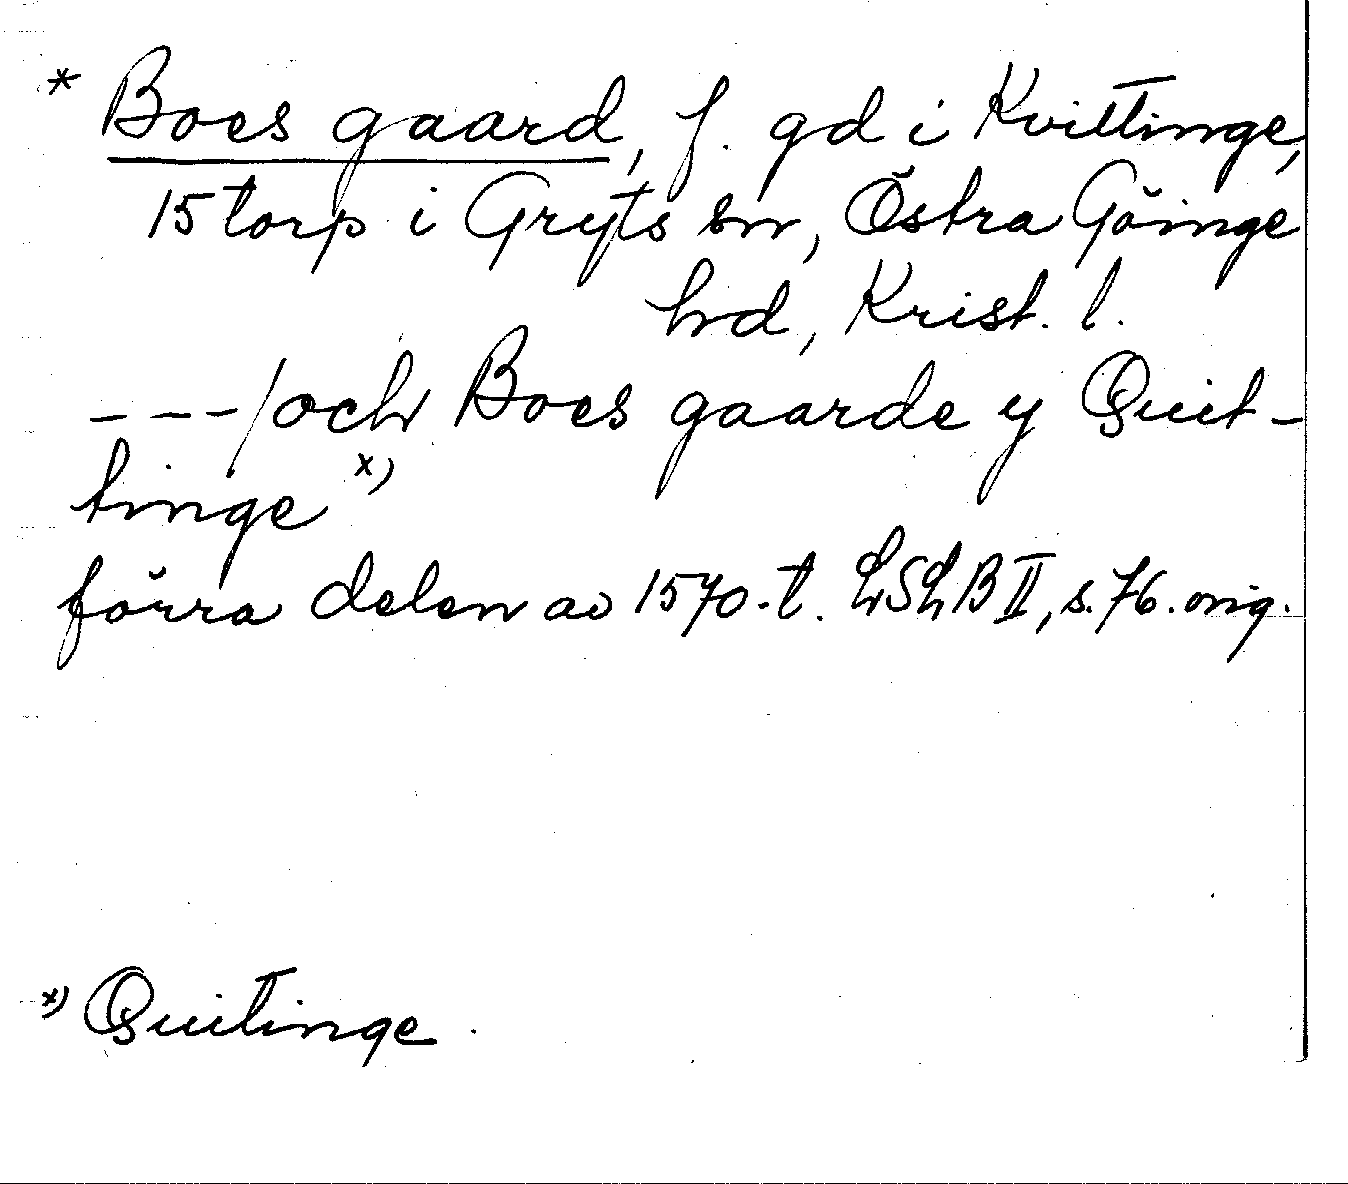 * Boes gaard, f. gd i Kvittinge,
15 torp i Gryts sn, Östra Göinge
hd, Krist. l.
---/och Boes gaarde y Quit-
tinge x)
förra delen av 1570-t. LSLB II, s. 76. orig.
x) Quitinge.